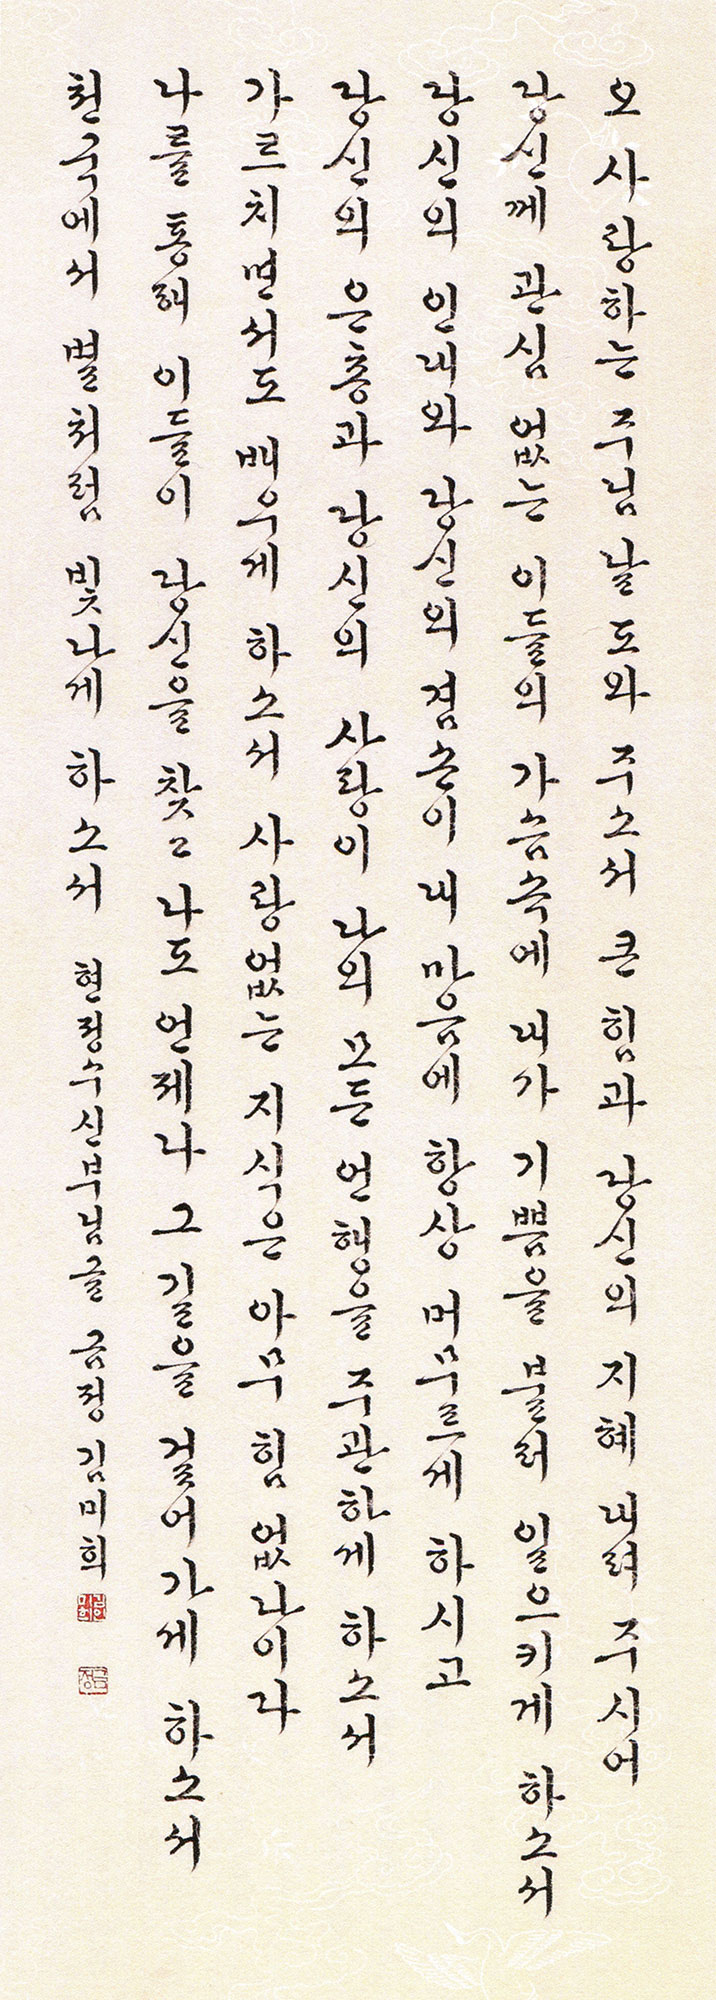 오 사랑하는 주님 날 도와 주소서 큰 힘과 당신의 지혜 내려 주시어
당신께 관심 없는 이들의 가슴속에 내가 기쁨을 불러 일으키게 하소서
당신의 인내와 당신의 겸손이 내 마음에 항상 머무르게 하시고
당신의 은총과 당신의 사랑이 나의 모든 언행을 주관하게 하소서
가르치면서도 배우게 하소서 사랑없는 지식은 아무 힘 없나이다
나를 통해 이들이 당신을 찾고 나도 언제나 그 길을 걸어가게 하소서
천국에서 별처럼 빛나게 하소서 현정수신부님글 금정 김미희